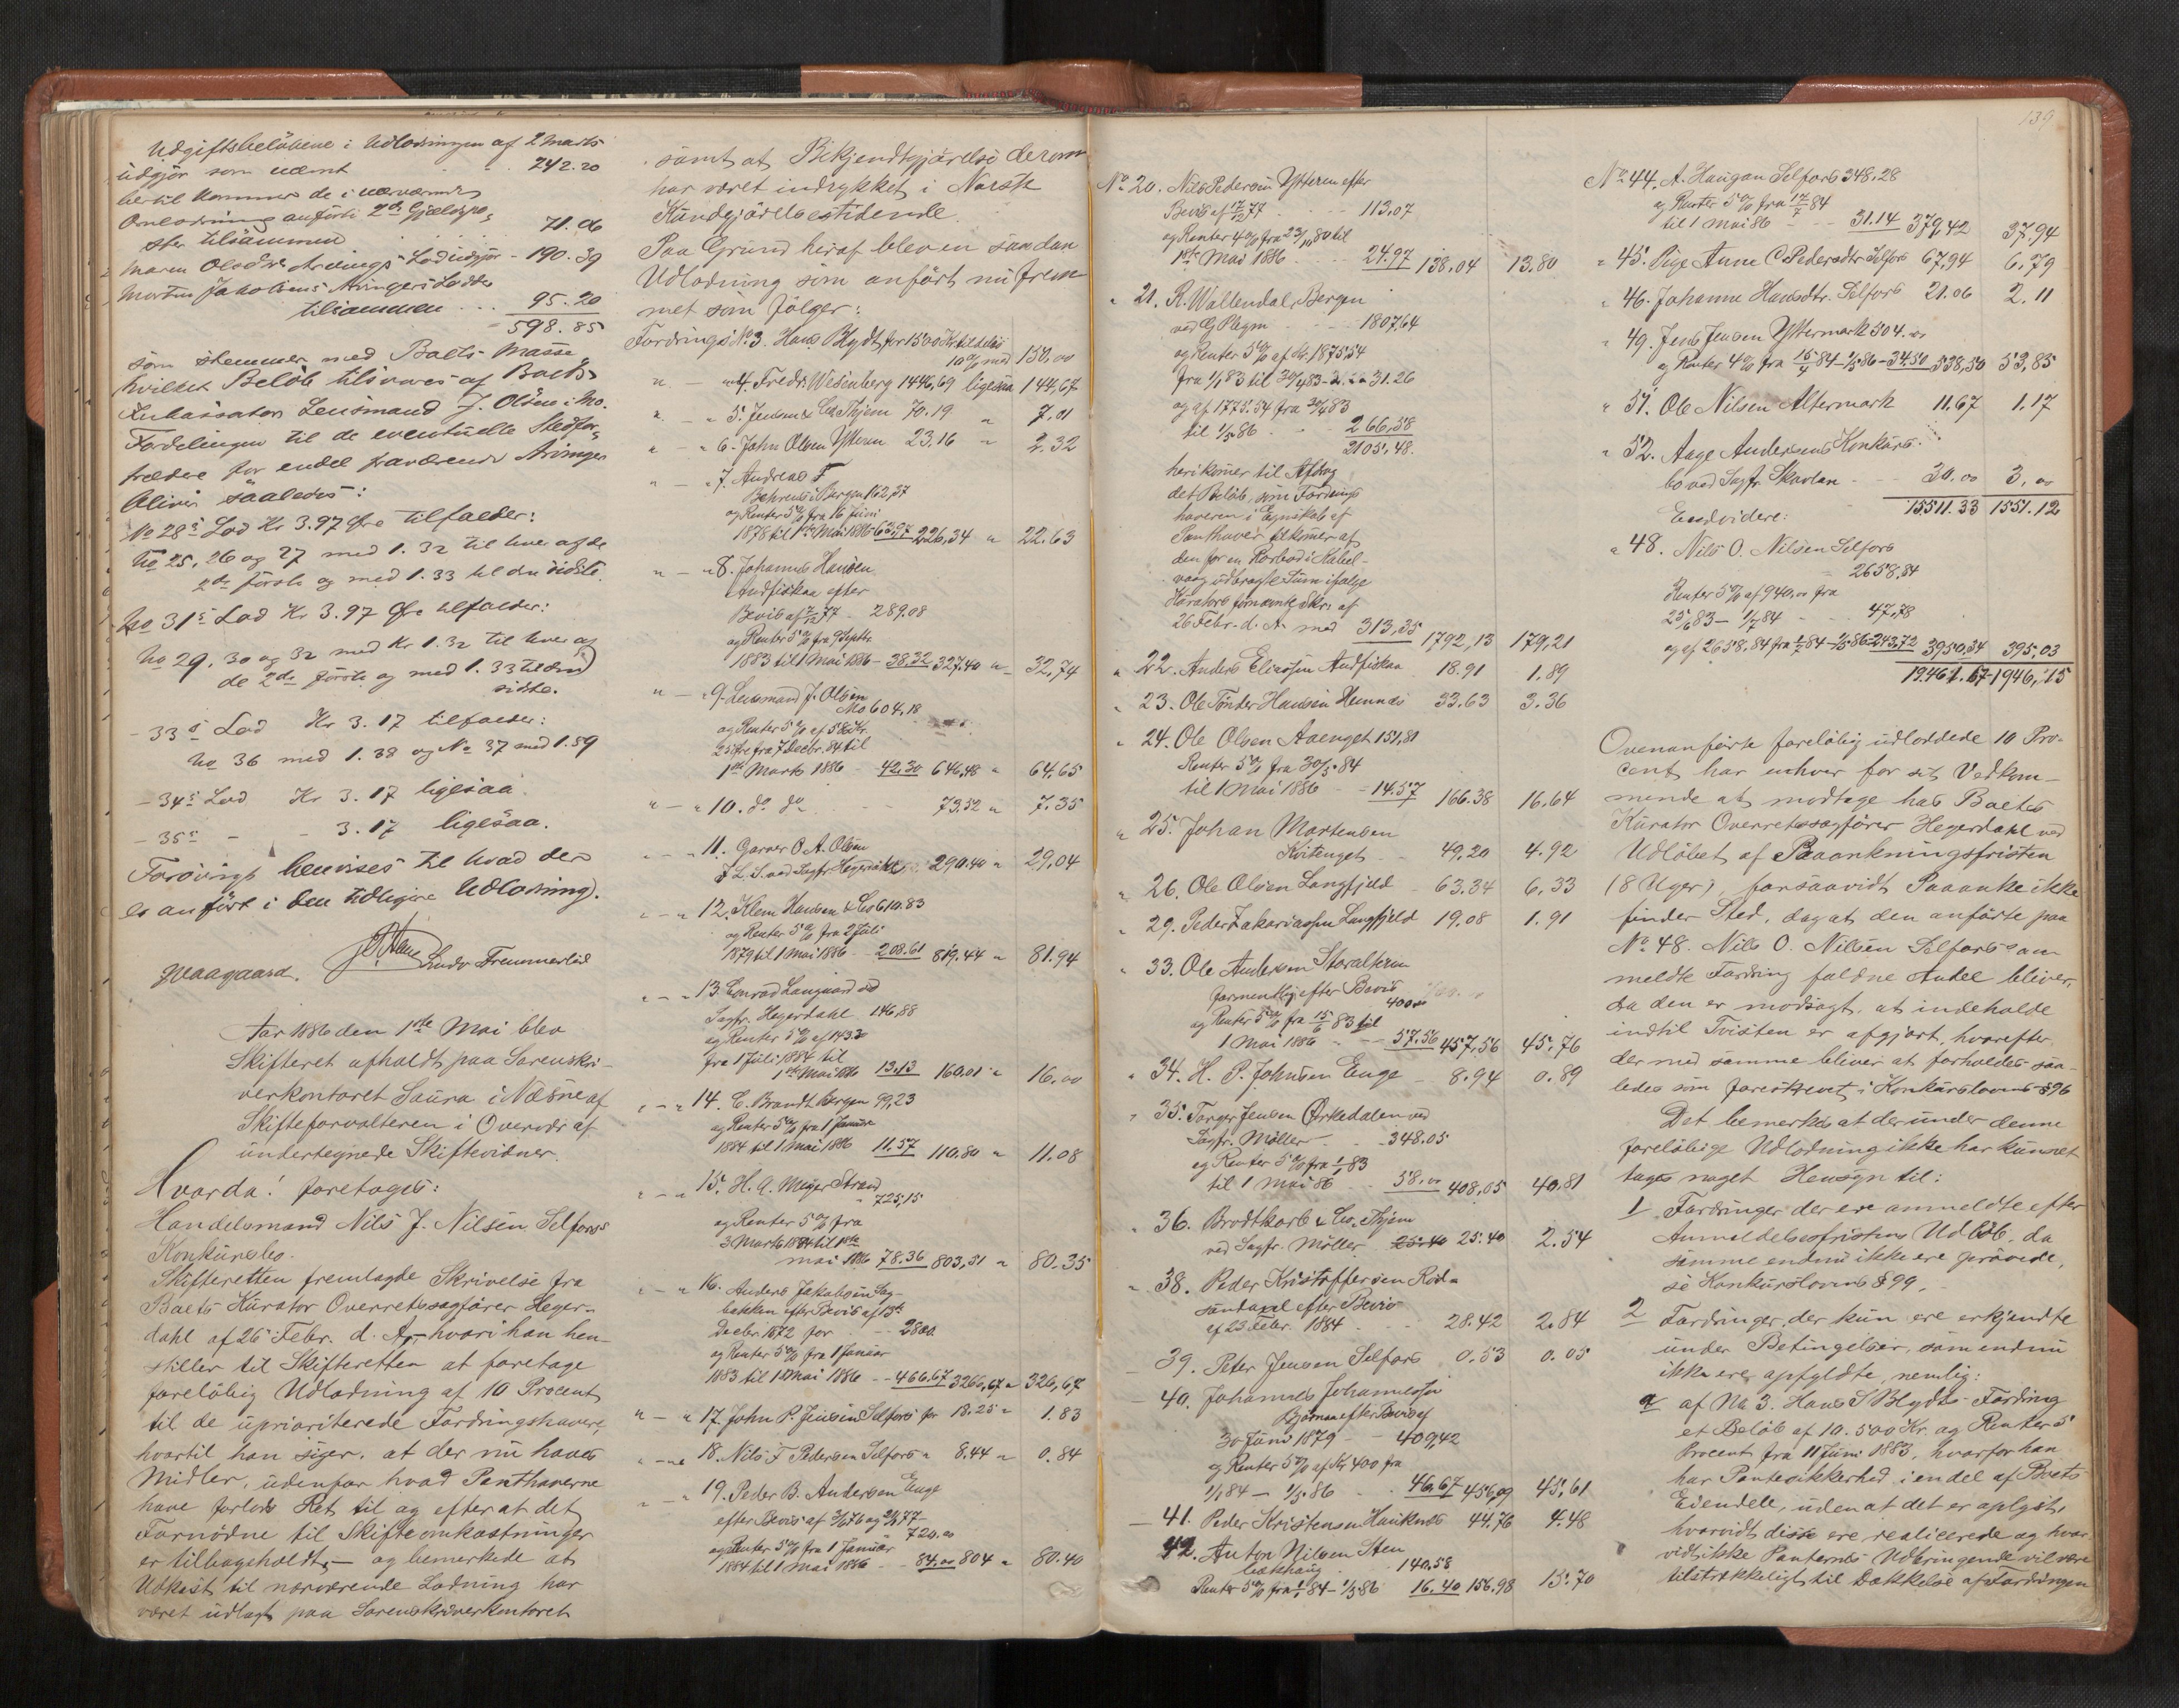 Udgiftsbeløbene i Udlodningen af 2 Marts
udgjør som nævnt 242.20
hertil kommer de i nærværende
Omlodning anførte 2de Gjældspo-
ster tilsammen 71.06
Maren Olsdtr Arvings Lod udgjør - 190.39
Morten Jakobsens Arvingers Lodder
tilsammen 95.20
598.85
som stemmer med Boets Masse,
hvilket Beløb tilsvares af Boets
Inkassator Lensmand J. Olsen i Mo.
Fordelingen til de eventuelle Stedfor-
trædere for endel fraværende Arvinger
bliver saaledes:
No 28s Lod Kr 3.97 Øre tilfalder:
No 25, 26 og 27 med 1.32 til hver af de
2de første og med 1.33 til den sidste.
No 31s Lod Kr 3.97 Øre tilfalder:
No 29, 30 og 32 med Kr 1.32 til hver af
de 2de første og med 1.33 til den
sidste.
- 33s Lod Kr 3.17 tilfalder:
No 36 med 1.38 og No 37 med 1.59
- 34s Lod Kr 3.17 ligesaa.
- 35s - - 3.17 ligesaa.
Forøvrigt henvises til hvad der
er anført i den tidligere Udlodning.
Aar 1886 den 1ste Mai blev
Skifteret afholdt paa Sorenskri-
verkontoret Saura i Næsne af
Skifteforvalteren i Overvær af
undertegnede Skiftevidner.
Hvorda! foretoges:
Handelsmand Nils J. Nilsen Selfors's
Konkursbo.
Skifteretten fremlagde Skrivelse fra
Boets Kurator Overretssagfører Heger-
dahl af 26 Febr. d. A., hvori han hen-
stiller til Skifteretten at foretage
foreløbig Udlodning af 10 Procent
til de uprioriterede Fordringshavere,
hvortil han siger, at der nu haves
Midler, udenfor hvad Panthaverne
have forlods Ret til og efter at det
Fornødne til Skifteomkostninger
er tilbageholdt, - og bemerkede at
Udkast til nærværende Lodning har
været udlagt paa Sorenskriverkontoret
samt at Bekjendtgjørelse derom
har været indrykket i Norsk
Kundgjørelsestidende.
Paa Grund heraf blev en saadan
Udlodning som anført nu frem-
met som følger:
Fordrings No 3. Hans Blydt, for 1500 Kr tildeles
10 % med 150,00
" - " 4. Fredr. Wesenberg 1446,69 ligesaa 144,67
" - " 5. Jensen & Co Thjem 70.19 " 7.01
" - " 6. John Olsen Ytteren 23.16 " 2.32
" - " 7. Andreas F
Behrens i Bergen 162,37
og Renter 5 % fra 16 Juni
1878 til 1ste Mai 1886 63,97 226,34 " 22.63
" - " 8. Johannes Hansen
Andfiskaa efter
Bevis af 289.08
og Renter 5 % fra 9 Septbr.
1883 til 1 Mai 1886 - 38.32 327.40 " 32,74
" - " 9. Lensmand J. Olsen
Mo 604,18
og Renter 5 % af
25 Øre fra 7 Decbr. 84 til
1ste Marts 1886 - 42.30 646,48 " 64.65
" - " 10. do do 73.52 " 7.35
" - " 11. Garver O. A. Olsen
ved Sagfr. Hegerdahl 290.40 " 29,04
" - " 12. Klem Hansen & Co 610.83
og Renter 5 % fra 2 Juli
1879 til 1 Mai 1886 - 208.61 819.44 " 81.94
" - " 13. Conrad Langaard ved
Sagfr. Hegerdahl 146,88
og Renter 5 % af 143
fra 1 Juli 1884 til
1ste Mai 1886 13.13 160.01 " 16.00
" - " 14. C. Brandt Bergen 99,23
og Renter 5 % fra 1 Januar
1884 til 1 Mai 1886 11.57 110.80 " 11.08
" - " 15. H. A. Meyer Strand
725,15
og Renter 5 % fra
3 Marts 1884 til 1ste
Mai 1886 78.36 803,51 " 80.35
" - " 16. Anders Jakobsen Sag-
bakken efter Bevis af 13de
Decbr. 1872 for - - 2800
og Renter 5 % fra 1 Januar
1883 til 1 Mai 1886 - - 466.67 3266,67 " 326,67
" - " 17. John P. Jensen Selfors for 18.25 " 1.83
" - " 18. Nils J Pedersen Selfors " 8.44 " 0.84
" - " 19. Peder B. Andersen Enge
efter Bevis af
720.00
og Renter 5 % fra 1 Januar
1884 til 1 Mai 1886 - 84,00 804 " 80.40
139
No 20. Nils Pedersen Ytteren efter
Bevis af 113,07
og Renter 4 % fra 23/11 80 til
1ste Mai 1886 24.97 138,04 13.80
" 21. R. Wallendal, Bergen
1807,64
og Renter 5 % af Kr. 1875,54
fra 1/1 83 til 30/4 83 - 31.26
og af 1775.54 fra 30/4 83
til 1/5 86 266,58
2105,48.
heri kommer til Afdrag
det Beløb, som Fordrings
haveren i Egenskab af
Panthaver tilkommer af
den for en Rorbod i Kabel-
vaag udbragte Sum ifølge
Kurators fornævnte Skr. af
26 Febr. d. A. med 313,35 1792,13 179,21
" 22. Anders Eliassen Andfiskaa 18.91 1.89
" 23. Ole Tønder Hansen Hemnæs 33.63 3.36
" 24. Ole Olsen Aaenget 151,81
Renter 5 % fra 30/5 84
til 1 Mai 1886 - 14.57 166.38 16.64
" 25. Johan Mortensen
Kvitenget 49,20 4.92
" 26. Ole Olsen Langfjeld 63.34 6,33
" 29. Peder Zakariassen Langfjeld 19,08 1.91
" 33. Ole Andersen Storalteren
formentlig efter Bevis
400,00
og Renter 5 % fra 15/6 83 til
1 Mai 1886 - 57.56 457,56 45,76
" 34. H. P. Johnsen Enge 8.94 0.89
" 35. Torger Jensen Ørkedalen ved
Sagfr. Møller 348.05
og Renter 5 % fra 1/1 83
til 1 Mai 86 58,00 408,05 40,81
" 36. Brodtkorb & Co. Thjem
ved Sagfr. Møller 25.40 25.40 2.54
" 38. Peder Kristoffersen Rød-
efter Bevis
af 23 Febr. 1884 28.42 2.84
- 39. Peter Jensen Selfors 0.53 0.05
- 40. Johannes Johannessen
Bjørnaa efter Bevis af
30 Juni 1879 - - 409,42
og Renter 5 % af Kr 400 fra
1/1 84 - 1/5 86 46,67 456,09 45,61
- 41. Peder Kristensen Hauknes 44.76 4.48
42. Anton Nilsen Sten
bækhaug 140.58
Renter 5 % fra 1/1 84 - 1/5 86 16.40 156.98 15.70
No 44. A. Haugan Selfors 348.28
og Renter 5 % fra 17/7 84
til 1 Mai 86 - - 31.14 379,42 37.94
" 45. Pige Anne C. Pedersdtr. Selfors 67,94 6,79
" 46. Johanne Hansdtr. Selfors 21.06 2.11
" 49. Jens Jensen Yttermark 504.00
og Renter 4 % fra 15/4 84 - 1/5 86 - 34.50 538,50 53,85
" 51. Ole Nilsen Altermark 11,67 1.17
" 52. Aage Andersens Konkurs-
bo ved Sagfr. Skavlan - - 30.00 3,00
15511.33 1551.12
Endvidere:
" 48. Nils O. Nilsen Selfors
2658,84
Renter 5 % af 940,00 fra
25/6 83 - 1/7 84 - - 47,78
og af 2658,84 fra 1/7 84 - 1/5 86 - 243,72 3950,34 395,03
19461.67 - 1946,15
Ovenanførte foreløbig udloddede 10 Pro-
cent har enhver for sit Vedkom-
mende at modtage hos Boets
Kurator Overretssagfører Hegerdahl ved
Udløbet af Paaankningsfristen
(8 Uger), forsaavidt Paaanke ikke
finder Sted, dog at den anførte paa
No 48. Nils O. Nilsen Selfors's an-
meldte Fordring faldne Andel bliver,
da den er modsagt, at indeholde
indtil Tvisten er afgjort, hvorefter
der med samme bliver at forholdes saa-
ledes som foreskrevet i Konkurslovens § 96
Det bemerkes at der under denne
foreløbige Udlodning ikke har kunnet
tages noget Hensyn til:
1 Fordringer der ere anmeldte efter
Anmeldelsesfristens Udløb, da
samme endnu ikke ere prøvede,
se Konkurslovens § 99,
2 Fordringer, der kun ere erkjendte
under Betingelser, som endnu
ikke ere opfyldte, nemlig:
a af No 3. Hans S Blydts Fordring
et Beløb af 10.500 Kr. og Renter 5
Procent fra 11 Juni 1883, hvorfor han
har Pantesikkerhed i en del af Boets
Eiendele, uden at det er oplyst,
hvorvidt disse ere realiserede og hvor
vidt ikke Panternes Udbringende vil være
tilstrækkeligt til Dækkelse af Fordringen